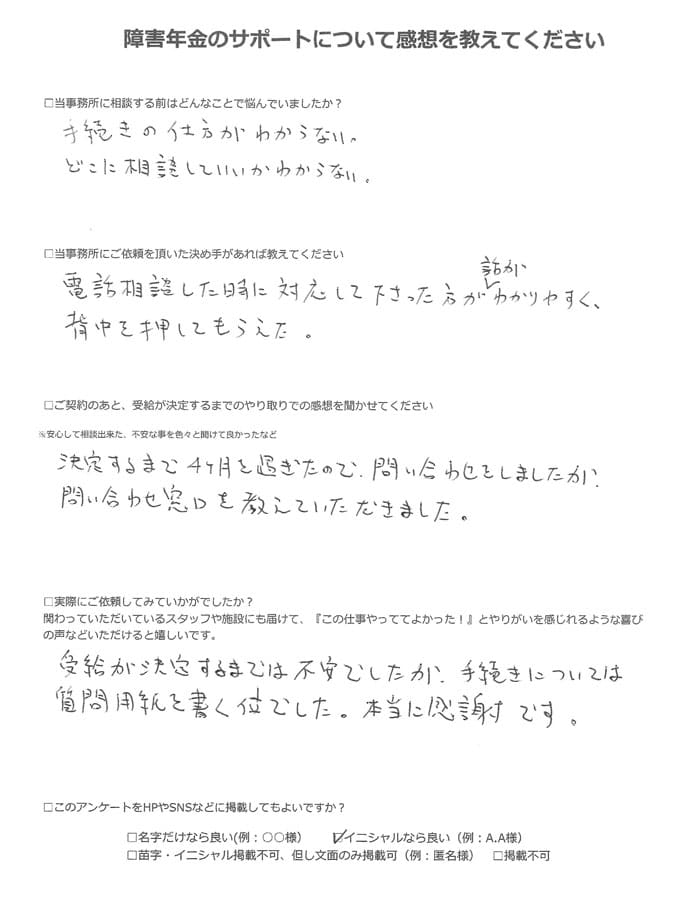 障害年金のサポートについて感想を教えてください
□当事務所に相談する前はどんなことで悩んでいましたか？
手続きの仕方がわからない。
どこに相談していいかわからない。
□当事務所にご依頼を頂いた決め手があれば教えてください
話が
電話相談した時に対応して下さった方がわかりやすく、
背中を押してもらえた。
□ご契約のあと、受給が決定するまでのやり取りでの感想を聞かせてください
※安心して相談出来た、不安な事を色々と聞けて良かったなど
決定するまで4ヶ月を過ぎたので、問い合わせをしましたが、
問い合わせ窓口を教えていただきました。
□実際にご依頼してみていかがでしたか？
関わっていただいているスタッフや施設にも届けて、『この仕事やっててよかった！』とやりがいを感じれるような喜び
の声などいただけると嬉しいです。
受給が決定するまでは不安でしたが、手続きについては
質問用紙を書く位でした。本当に感謝です。
□このアンケートをHPやSNSなどに掲載してもよいですか？
□名字だけなら良い(例：○○様） ☑イニシャルなら良い（例：A.A様）
□苗字・イニシャル掲載不可、但し文面のみ掲載可（例：匿名様） □掲載不可